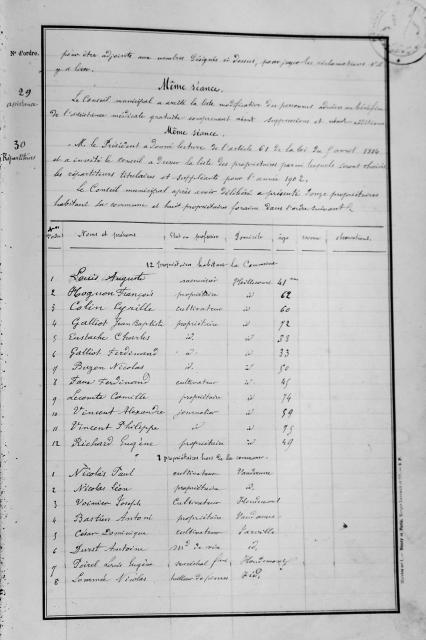 N° d'ordre.
pour être adjoints aux membres désignés ci dessus, pour juger les réclamations s'il
y a lieu.
Même séance.
29
assistance
Le Conseil municipal a arrêté la liste modificative des personnes admises au bénéfice
de l'assistance médicale gratuite comprenant néant suppressions et néant additions
Même séance.
30
Répartiteurs
M. le Président a donné lecture de l'article 61 de la loi du 5 avril 1884
et a invité le conseil à dresser la liste des propriétaires parmi lesquels seront choisis
les répartiteurs titulaires et suppléants pour l'année 1902.
Le Conseil municipal après avoir délibéré a présenté douze propriétaires
habitant la commune et huit propriétaires forains dans l'ordre suivant
Noms et prénoms État ou profession Domicile âge observations
12 propriétaires habitant la Commune
1 Louis Auguste 41 ans
2 Hognon François propriétaire id 62
3 Colin Cyrille cultivateur id 60
4 Galliot Jean Baptiste propriétaire id 72
5 Eustache Charles id. id 53
6 Galliot Ferdinand id. id 33
7 Bazon Nicolas id. id 50
8 Ferdinand cultivateur id 45
9 Lecomte Camille propriétaire id 74
10 Vincent Alexandre journalier id 59
11 Vincent Philippe id id 75
12 Richard Eugène propriétaire id 49
propriétaires hors de la commune.
1 Nicolas Paul cultivateur
2 Nicolas Léon propriétaire id.
3 Voinier Joseph Cultivateur
4 Bastien Antoine propriétaire
5 César Dominique Cultivateur
6 Antoine Md de vin id.
7 Poirel Louis Eugène maréchal ft
8 Nicolas tailleur de pierres id.